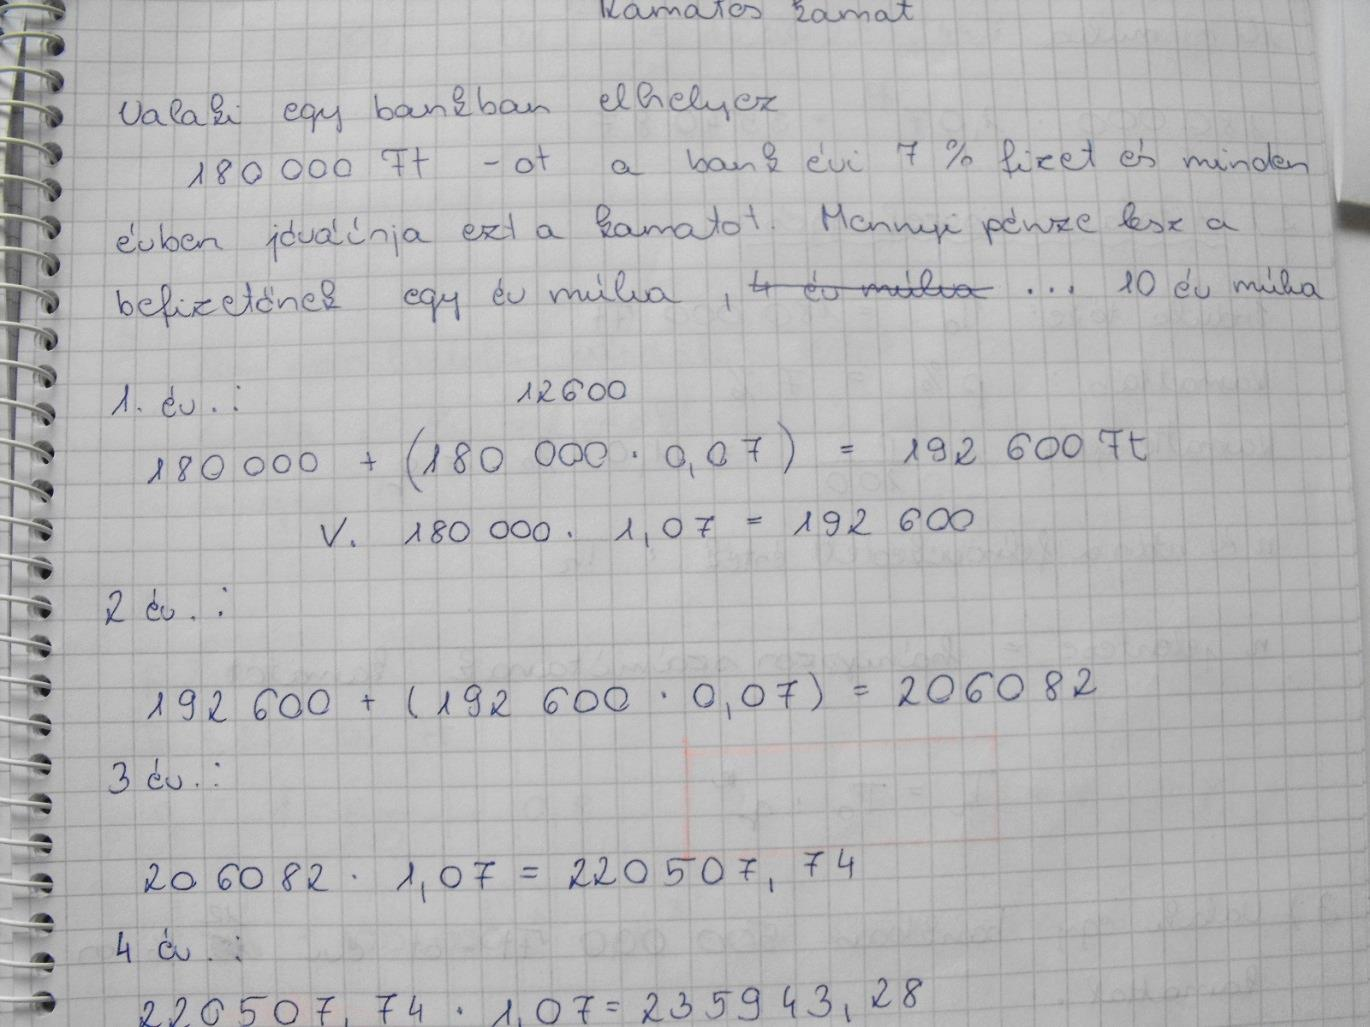 Kamatos kamat
Valaki egy bankban elhelyez
180 000 Ft -ot a bank évi 7 % fizet és minden
évben jóváírja ezt a kamatot. Mennyi pénze lesz a
befizetőnek egy év múlva , 4 év múlva ... 10 év múlva
1. év.:
12600
180 000 + (180 000 · 0,07) = 192 600 Ft
V. 180 000 · 1,07 = 192 600
2 év.:
192 600 + (192 600 · 0,07) = 206082
3 év.:
206082 · 1,07 = 220507,74
4 év.:
220507,74 · 1,07 = 235943,28